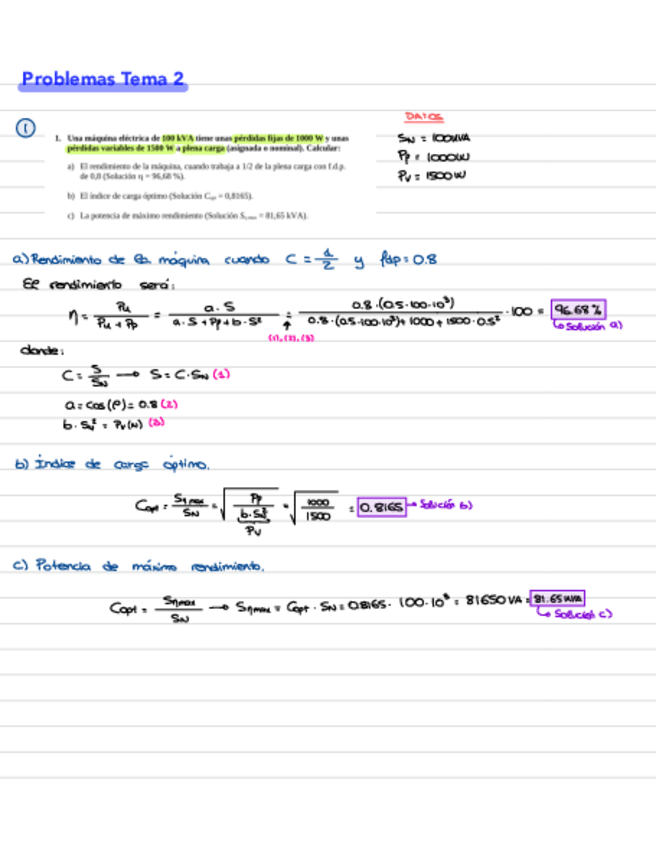 Problemas Tema 2
1
1. Una máquina eléctrica de 100 kVA tiene unas pérdidas fijas de 1000 W y unas
pérdidas variables de 1500 W a plena carga (asignada o nominal). Calcular:
a) El rendimiento de la máquina, cuando trabaja a 1/2 de la plena carga con f.d.p.
de 0,8 (Solución η = 96,68 %).
b) El índice de carga óptimo (Solución Copt = 0,8165).
c) La potencia de máximo rendimiento (Solución Sηmax = 81,65 kVA).
DATOS
SN = 100kVA
Pp = 1000W
Pv = 1500W
a) Rendimiento de la máquina cuando C = 1/2 y fdp = 0.8
El rendimiento será:
η = Pu / (Pu + Pp) = a·S / (a·S + Pp + b·S²) = 0.8·(0.5·100·10³) / (0.8·(0.5·100·10³) + 1000 + 1500·0.5²) · 100 = 96.68%
(1), (2), (3)
Solución a)
donde:
C = S/SN → S = C·SN (1)
a = cos(φ) = 0.8 (2)
b·SN² = Pv(N) (3)
b) Índice de carga óptimo.
Copt = Sηmax/SN = √(Pp / b·SN²) = √(1000/1500) = 0.8165 → Solución b)
Pv
c) Potencia de máximo rendimiento.
Copt = Sηmax/SN → Sηmax = Copt · SN = 0.8165 · 100·10³ = 81650 VA = 81.65 kVA
Solución c)